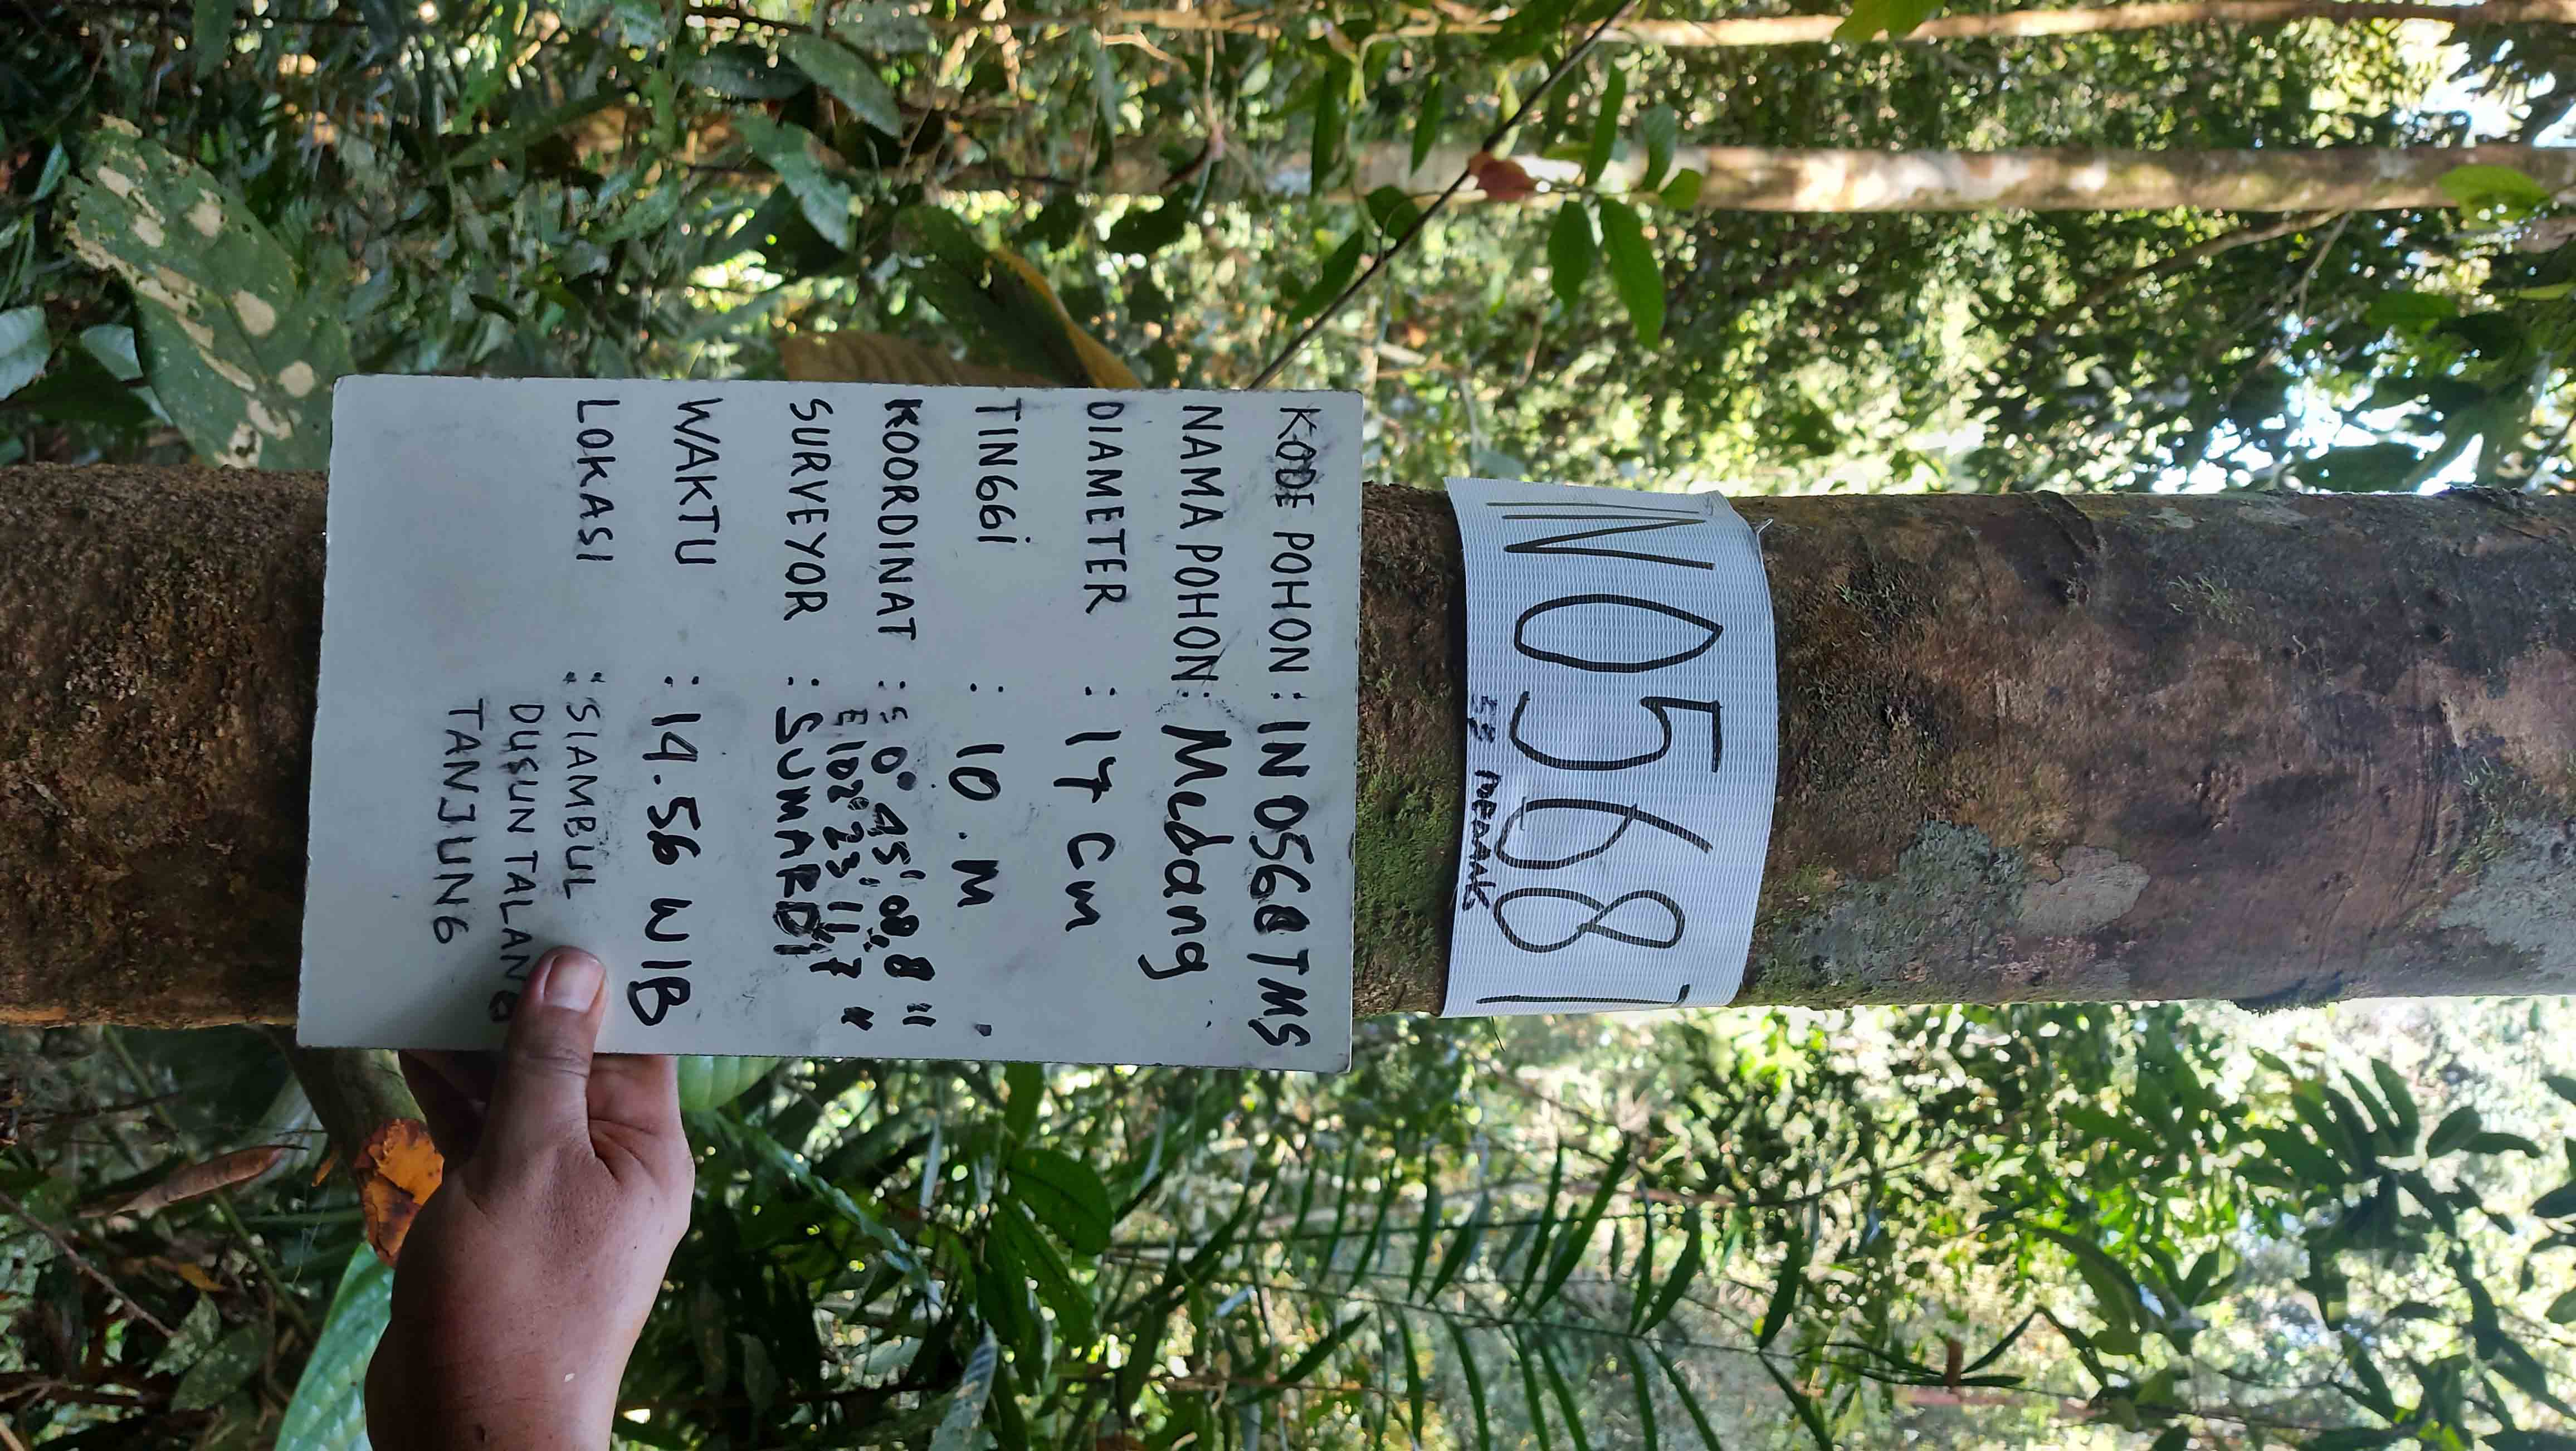 IN0568T
53 MEDANG
KODE POHON : IN 0568 TMS
NAMA POHON : Medang
DIAMETER : 17 cm
TINGGi : 10 . M
KOORDINAT : S 0° 45' 08,8"
E 102° 23' 11,7"
SURVEYOR : SUMARDI
WAKTU : 14.56 WIB
LOKASI : SIAMBUL
DUSUN TALANG
TANJUNG